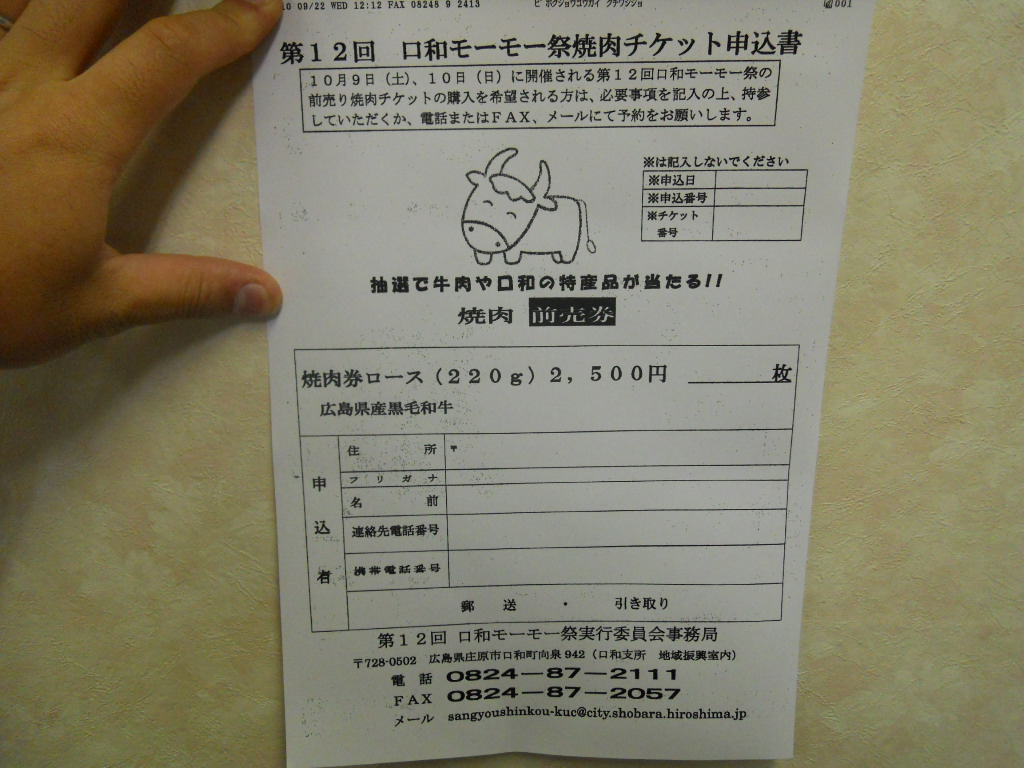 10 09/22 WED 12:12 FAX 08248 9 2413
001
第12回 口和モーモー祭焼肉チケット申込書
10月9日(土)、10日(日)に開催される第12回口和モーモー祭の
前売り焼肉チケットの購入を希望される方は、必要事項を記入の上、持参
していただくか、電話またはFAX、メールにて予約をお願いします。
※は記入しないでください
※申込日
※申込番号
※チケット
番号
抽選で牛肉や口和の特産品が当たる!!
焼肉 前売券
焼肉券ロース(220g)2,500円 枚
広島県産黒毛和牛
申込者
住所 〒
フリガナ
名前
連絡先電話番号
携帯電話番号
郵送 ・ 引き取り
第12回 口和モーモー祭実行委員会事務局
〒728-0502 広島県庄原市口和町向泉942(口和支所 地域振興室内)
電話 0824-87-2111
FAX 0824-87-2057
メール sangyoushinkou-kuc@city.shobara.hiroshima.jp